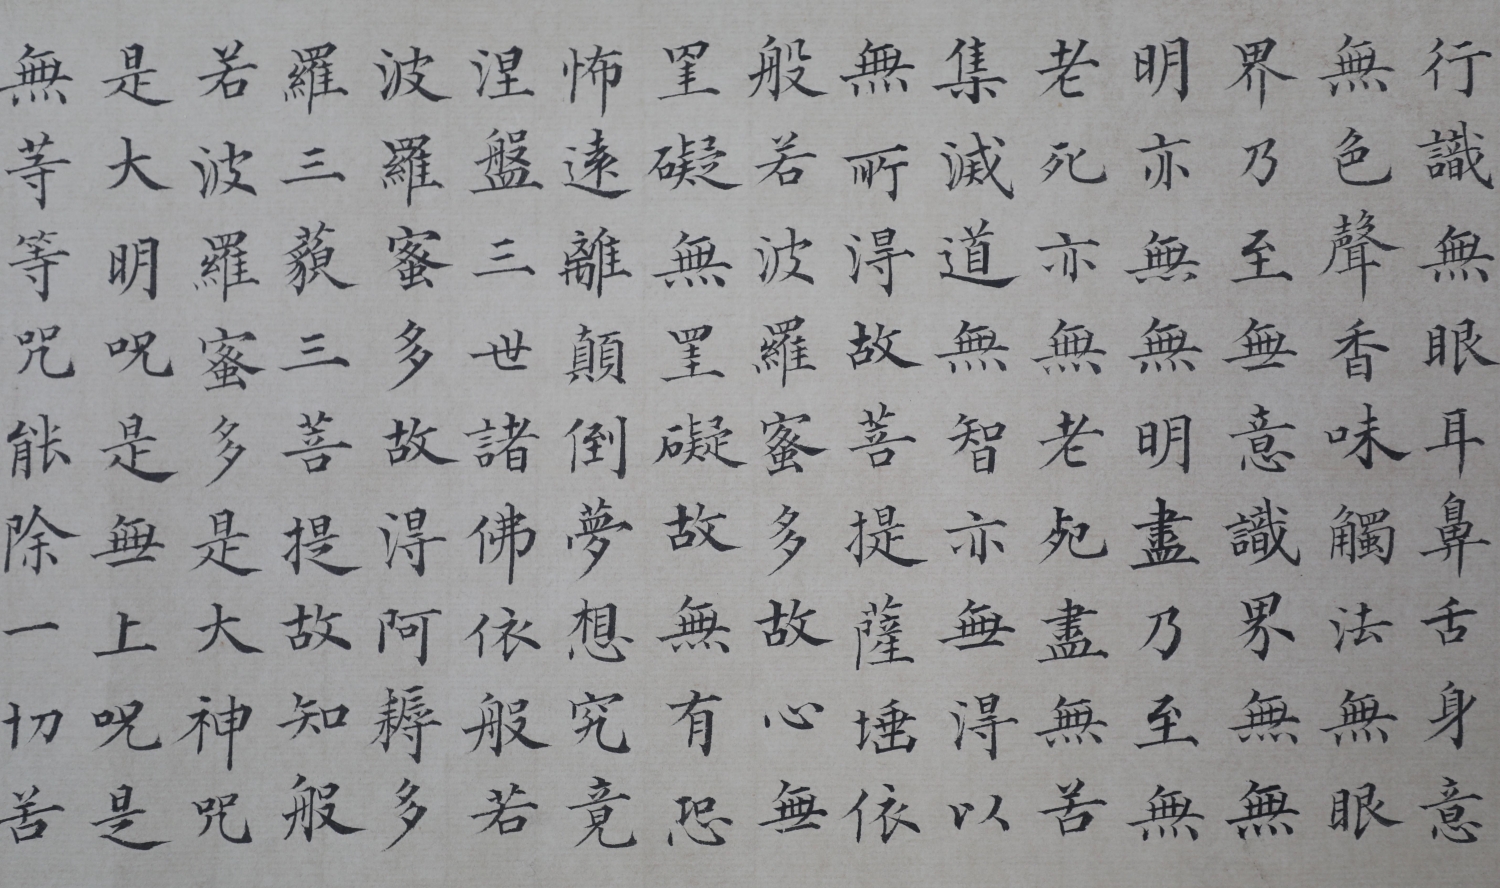 行識無眼耳鼻舌身意
無色聲香味觸法無眼
界乃至無意識界無無
明亦無無明盡乃至無
老死亦無老死盡無苦
集滅道無智亦無得以
無所得故菩提薩埵依
般若波羅蜜多故心無
罣礙無罣礙故無有恐
怖遠離顛倒夢想究竟
涅盤三世諸佛依般若
波羅蜜多故得阿耨多
羅三藐三菩提故知般
若波羅蜜多是大神咒
是大明呪是無上呪是
無等等咒能除一切苦